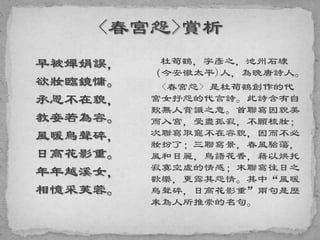 <春宮怨>賞析
早被嬋娟誤，
欲妝臨鏡慵。
承恩不在貌，
教妾若為容。
風暖鳥聲碎，
日高花影重。
年年越溪女，
相憶采芙蓉。
杜荀鶴，字彥之，池州石埭
(今安徽太平)人，為晚唐詩人。
〈春宮怨〉是杜荀鶴創作的代
宮女抒怨的代言詩。此詩含有自
歎無人賞識之意。首聯寫因貌美
而入宮，受盡孤寂，不願梳妝；
次聯寫取寵不在容貌，因而不必
妝扮了；三聯寫景，春風駘蕩，
風和日麗，鳥語花香，藉以烘托
寂寞空虛的情感；末聯寫往日之
歡樂，更露其怨情。其中“風暖
鳥聲碎，日高花影重”兩句是歷
來為人所推崇的名句。